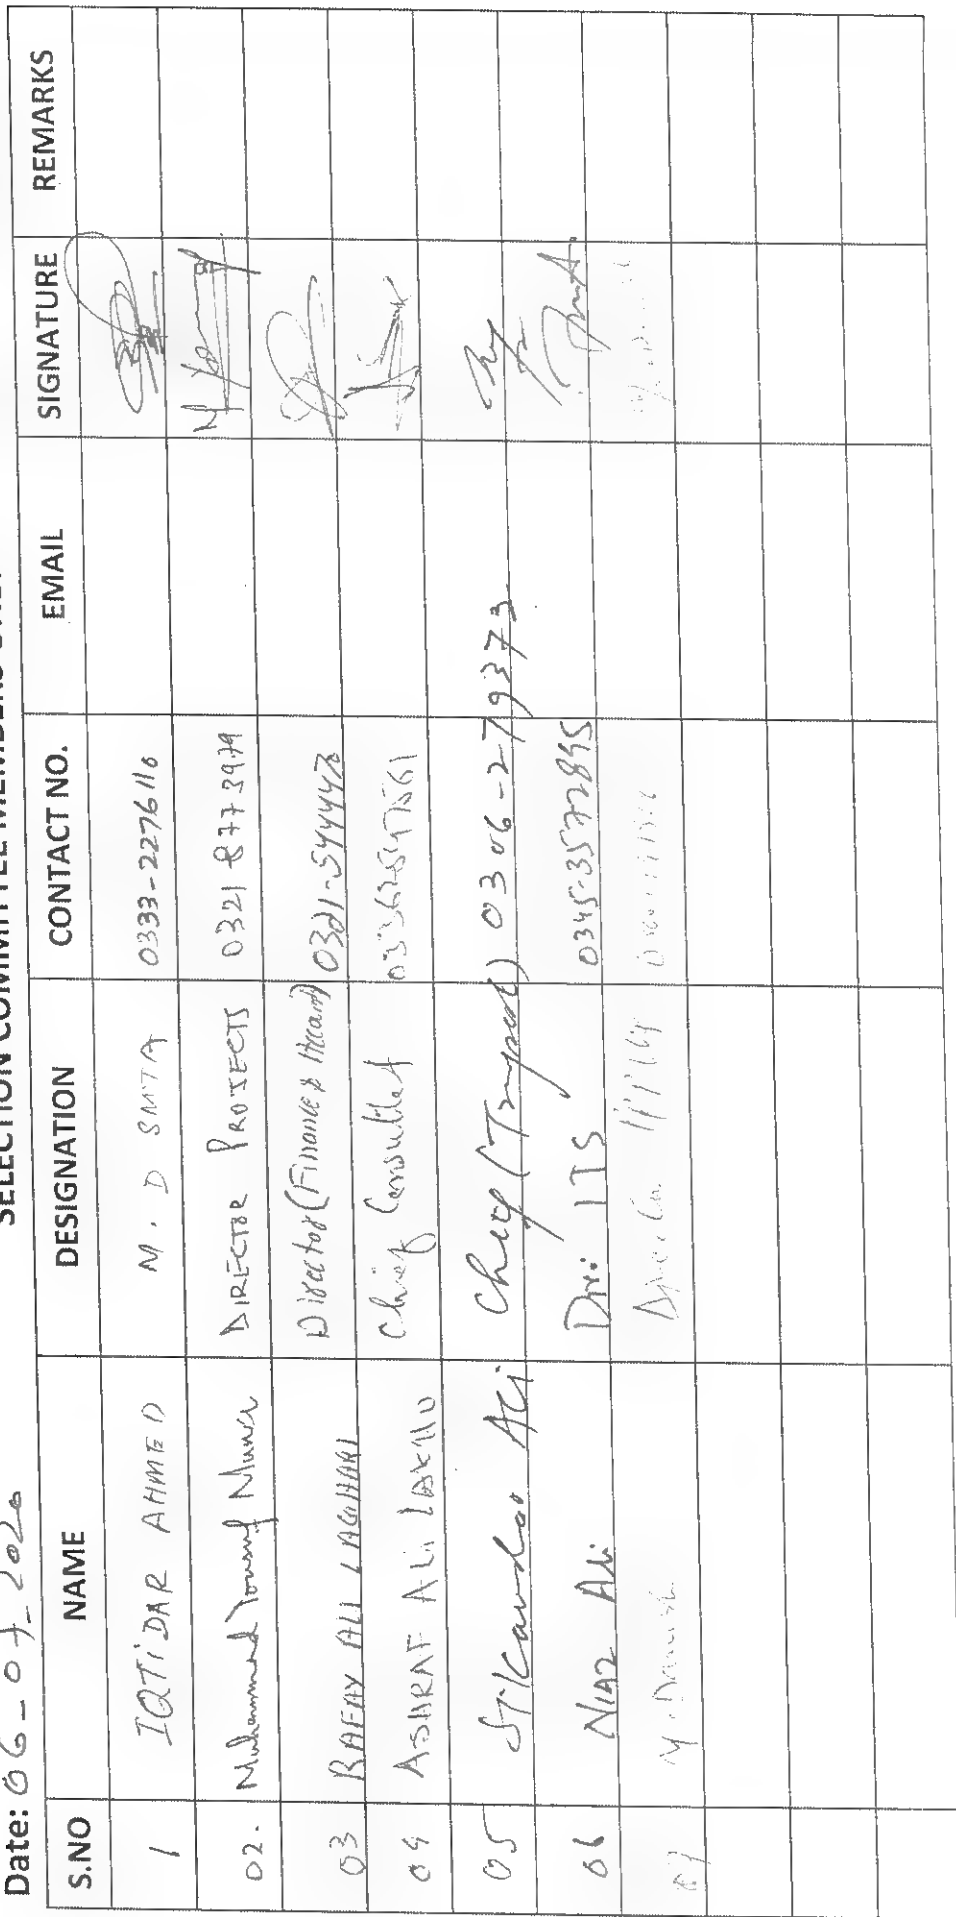 SELECTION COMMITTEE MEMBERS
Date: 06-07-2020
S.NO NAME DESIGNATION CONTACT NO. EMAIL SIGNATURE REMARKS
1 IQTIDAR AHMED M.D SMTA 0333-2276110
02. Muhammad Yousuf Munir DIRECTOR PROJECTS 0321 8773979
03 RAFAY ALI LAGHARI Director (Finance & Accand) 0321-5444478
04 ASHRAF Ali LAKHO Chief Consultat
05 Ali Chief 0306-2719373
06 NIAZ Ali Dir: ITS 0345-3572895
07 M. Danish